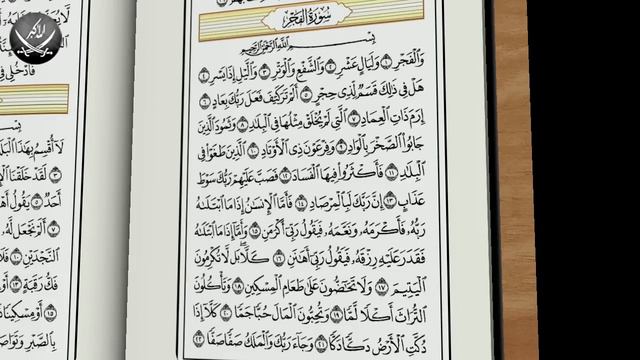 سُورَةُ الفَجْرِ
بِسْمِ اللَّهِ الرَّحْمَٰنِ الرَّحِيمِ
وَالْفَجْرِ ١ وَلَيَالٍ عَشْرٍ ٢ وَالشَّفْعِ وَالْوَتْرِ ٣ وَاللَّيْلِ إِذَا يَسْرِ ٤
هَلْ فِي ذَٰلِكَ قَسَمٌ لِّذِي حِجْرٍ ٥ أَلَمْ تَرَ كَيْفَ فَعَلَ رَبُّكَ بِعَادٍ ٦
إِرَمَ ذَاتِ الْعِمَادِ ٧ الَّتِي لَمْ يُخْلَقْ مِثْلُهَا فِي الْبِلَادِ ٨ وَثَمُودَ الَّذِينَ
جَابُوا الصَّخْرَ بِالْوَادِ ٩ وَفِرْعَوْنَ ذِي الْأَوْتَادِ ١٠ الَّذِينَ طَغَوْا فِي
الْبِلَادِ ١١ فَأَكْثَرُوا فِيهَا الْفَسَادَ ١٢ فَصَبَّ عَلَيْهِمْ رَبُّكَ سَوْطَ
عَذَابٍ ١٣ إِنَّ رَبَّكَ لَبِالْمِرْصَادِ ١٤ فَأَمَّا الْإِنسَانُ إِذَا مَا ابْتَلَاهُ
رَبُّهُ فَأَكْرَمَهُ وَنَعَّمَهُ فَيَقُولُ رَبِّي أَكْرَمَنِ ١٥ وَأَمَّا إِذَا مَا ابْتَلَاهُ
فَقَدَرَ عَلَيْهِ رِزْقَهُ فَيَقُولُ رَبِّي أَهَانَنِ ١٦ كَلَّا بَل لَّا تُكْرِمُونَ
الْيَتِيمَ ١٧ وَلَا تَحَاضُّونَ عَلَىٰ طَعَامِ الْمِسْكِينِ ١٨ وَتَأْكُلُونَ
التُّرَاثَ أَكْلًا لَّمًّا ١٩ وَتُحِبُّونَ الْمَالَ حُبًّا جَمًّا ٢٠ كَلَّا إِذَا
دُكَّتِ الْأَرْضُ دَكًّا دَكًّا ٢١ وَجَاءَ رَبُّكَ وَالْمَلَكُ صَفًّا صَفًّا ٢٢
فَادْخُلِي فِي
لَا أُقْسِمُ بِهَٰذَا الْبَلَدِ
لَقَدْ خَلَقْنَا
أَحَدٌ ٥ يَقُولُ
أَلَمْ نَجْعَل لَّهُ
النَّجْدَيْنِ ١٠ فَلَا
فَكُّ رَقَبَةٍ ١٣ أَوْ
أَوْ مِسْكِينًا
بِالصَّبْرِ وَتَوَاصَوْا